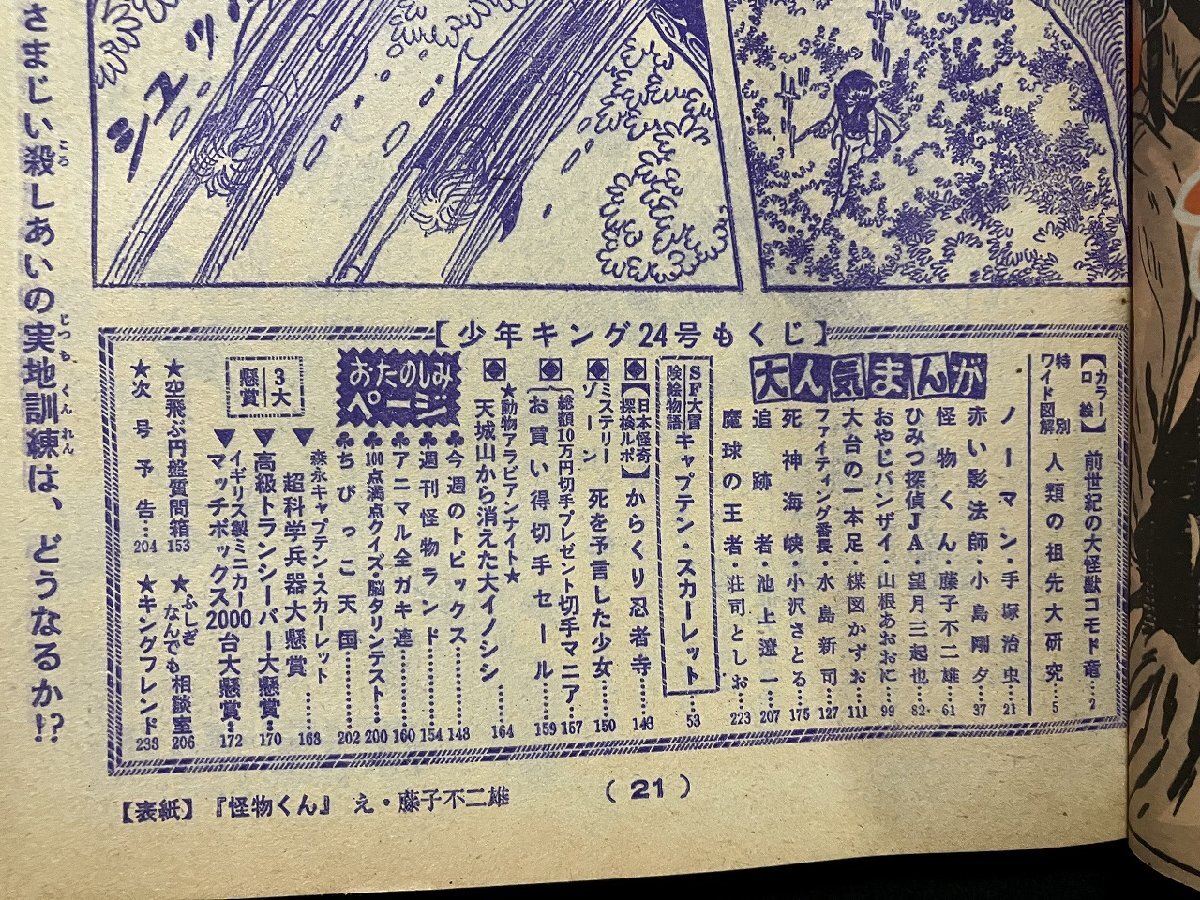 さまじい殺しあいの実地訓練は、どうなるか!?
ころ
じっち くんれん
【少年キング24号もくじ】
【カラー口絵】 前世紀の大怪獣コモド竜…2
特別ワイド図解 人類の祖先大研究…5
大人気まんが
ノーマン・手塚治虫…21
赤い影法師・小島剛夕…37
怪物くん・藤子不二雄…61
ひみつ探偵JA・望月三起也…82
おやじバンザイ・山根あおおに…99
大台の一本足・楳図かずお…111
ファイティング番長・水島新司…127
死神海峡・小沢さとる…175
追跡者・池上遼一…207
魔球の王者・荘司としお…223
SF大冒険絵物語 キャプテン・スカーレット……53
【日本怪奇探検ルポ】からくり忍者寺……143
ミステリーゾーン 死を予言した少女…150
総額10万円切手プレゼント切手マニア…157
お買い得切手セール…159
★動物アラビアンナイト★
天城山から消えた大イノシシ……164
おたのしみページ
♣今週のトピックス……148
♣週刊怪物ランド……154
♣アニマル全ガキ連……160
♣100点満点クイズ・脳タリンテスト…200
♣ちびっこ天国……202
3大懸賞
森永キャプテン・スカーレット
▼超科学兵器大懸賞……168
▼高級トランシーバー大懸賞…170
イギリス製ミニカー
▼マッチボックス2000台大懸賞…172
★空飛ぶ円盤質問箱153
★ふしぎなんでも相談室206
★次号予告…204
★キングフレンド238
【表紙】『怪物くん』 え・藤子不二雄
(21)